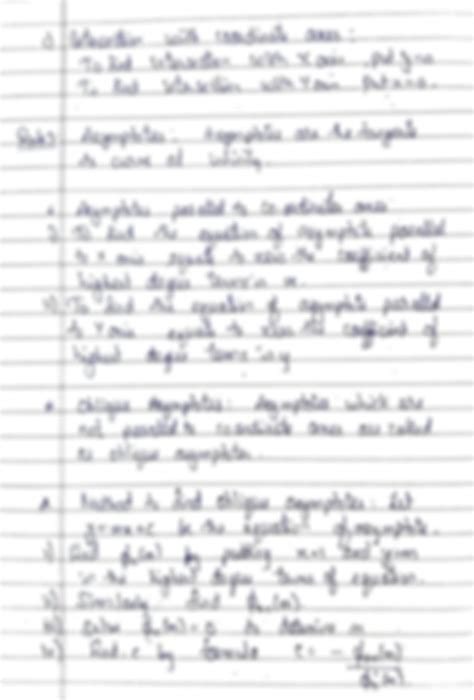 i) Intersection with coordinate axes :
To find Intersection with X axis put y=0
To find Intersection with Y axis put x=0.
Asymptotes : Asymptotes are the tangents
to curve at infinity.
Asymptotes parallel to co-ordinate axes
i) To find the equation of asymptote parallel
to X axis equate to zero the coefficient of
highest degree terms in x.
ii) To find the equation of asymptote parallel
to Y axis equate to zero the coefficient of
highest degree terms in y
Oblique Asymptotes : Asymptotes which are
not parallel to coordinate axes are called
as oblique asymptotes.
Method to find Oblique asymptotes : Let
y=mx+c be the equation of asymptote.
i) Find φn(m) by putting x=1 and y=m
in the highest degree terms of equation.
ii) Similarly find
iii) Solve φn(m)=0 to determine m
iv) Find c by formula c = -